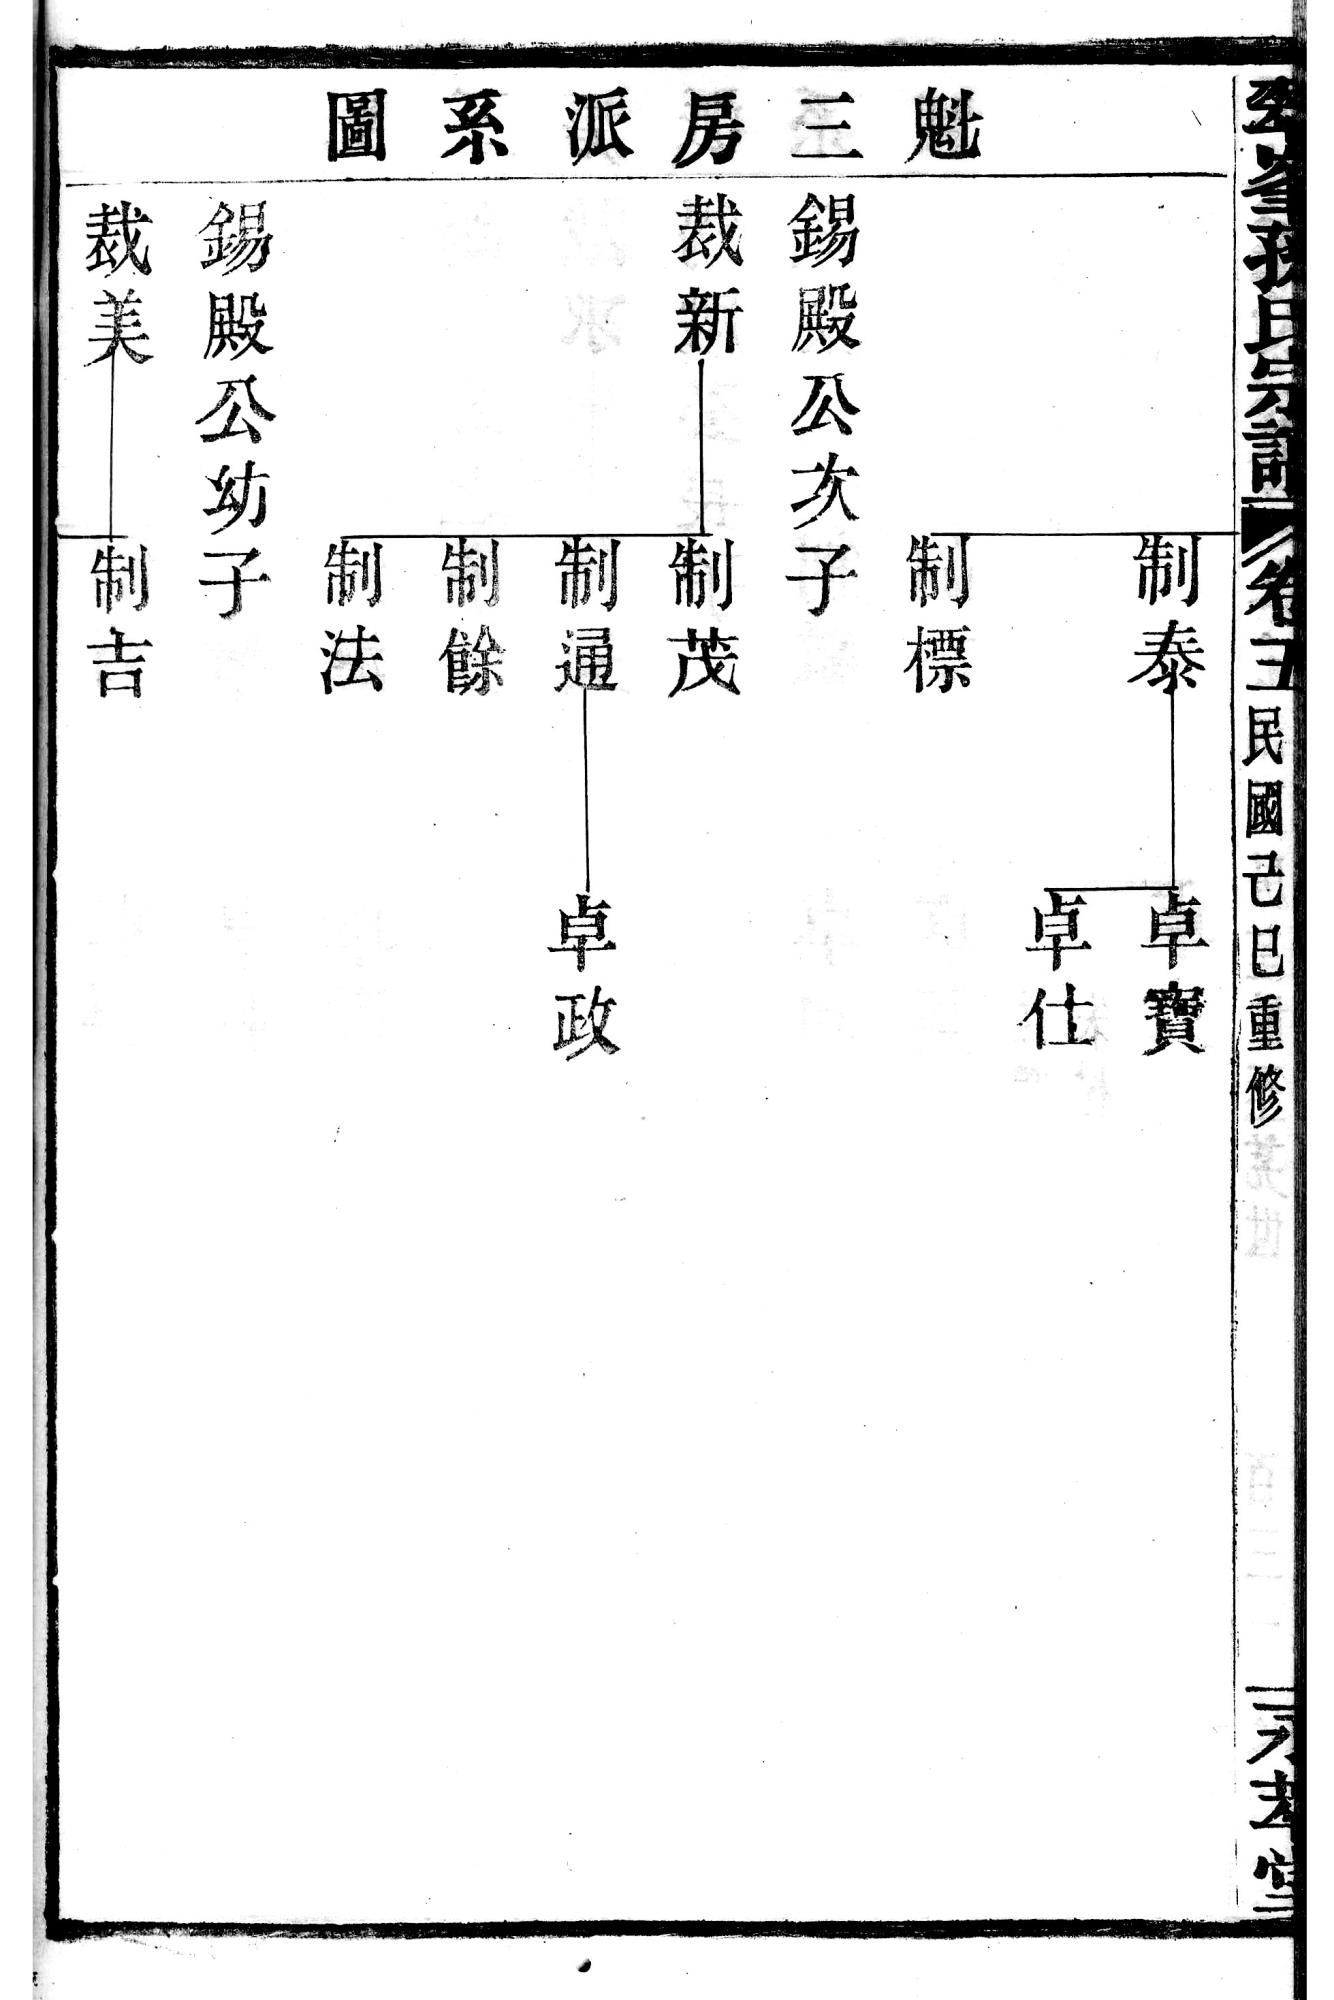 魁三房派系圖
制泰
卓寶
卓仕
制標
錫殿公次子
裁新
制茂
制通
卓政
制餘
制法
錫殿公幼子
裁美
制吉
孫氏宗譜
卷五
民國己巳重修
堂